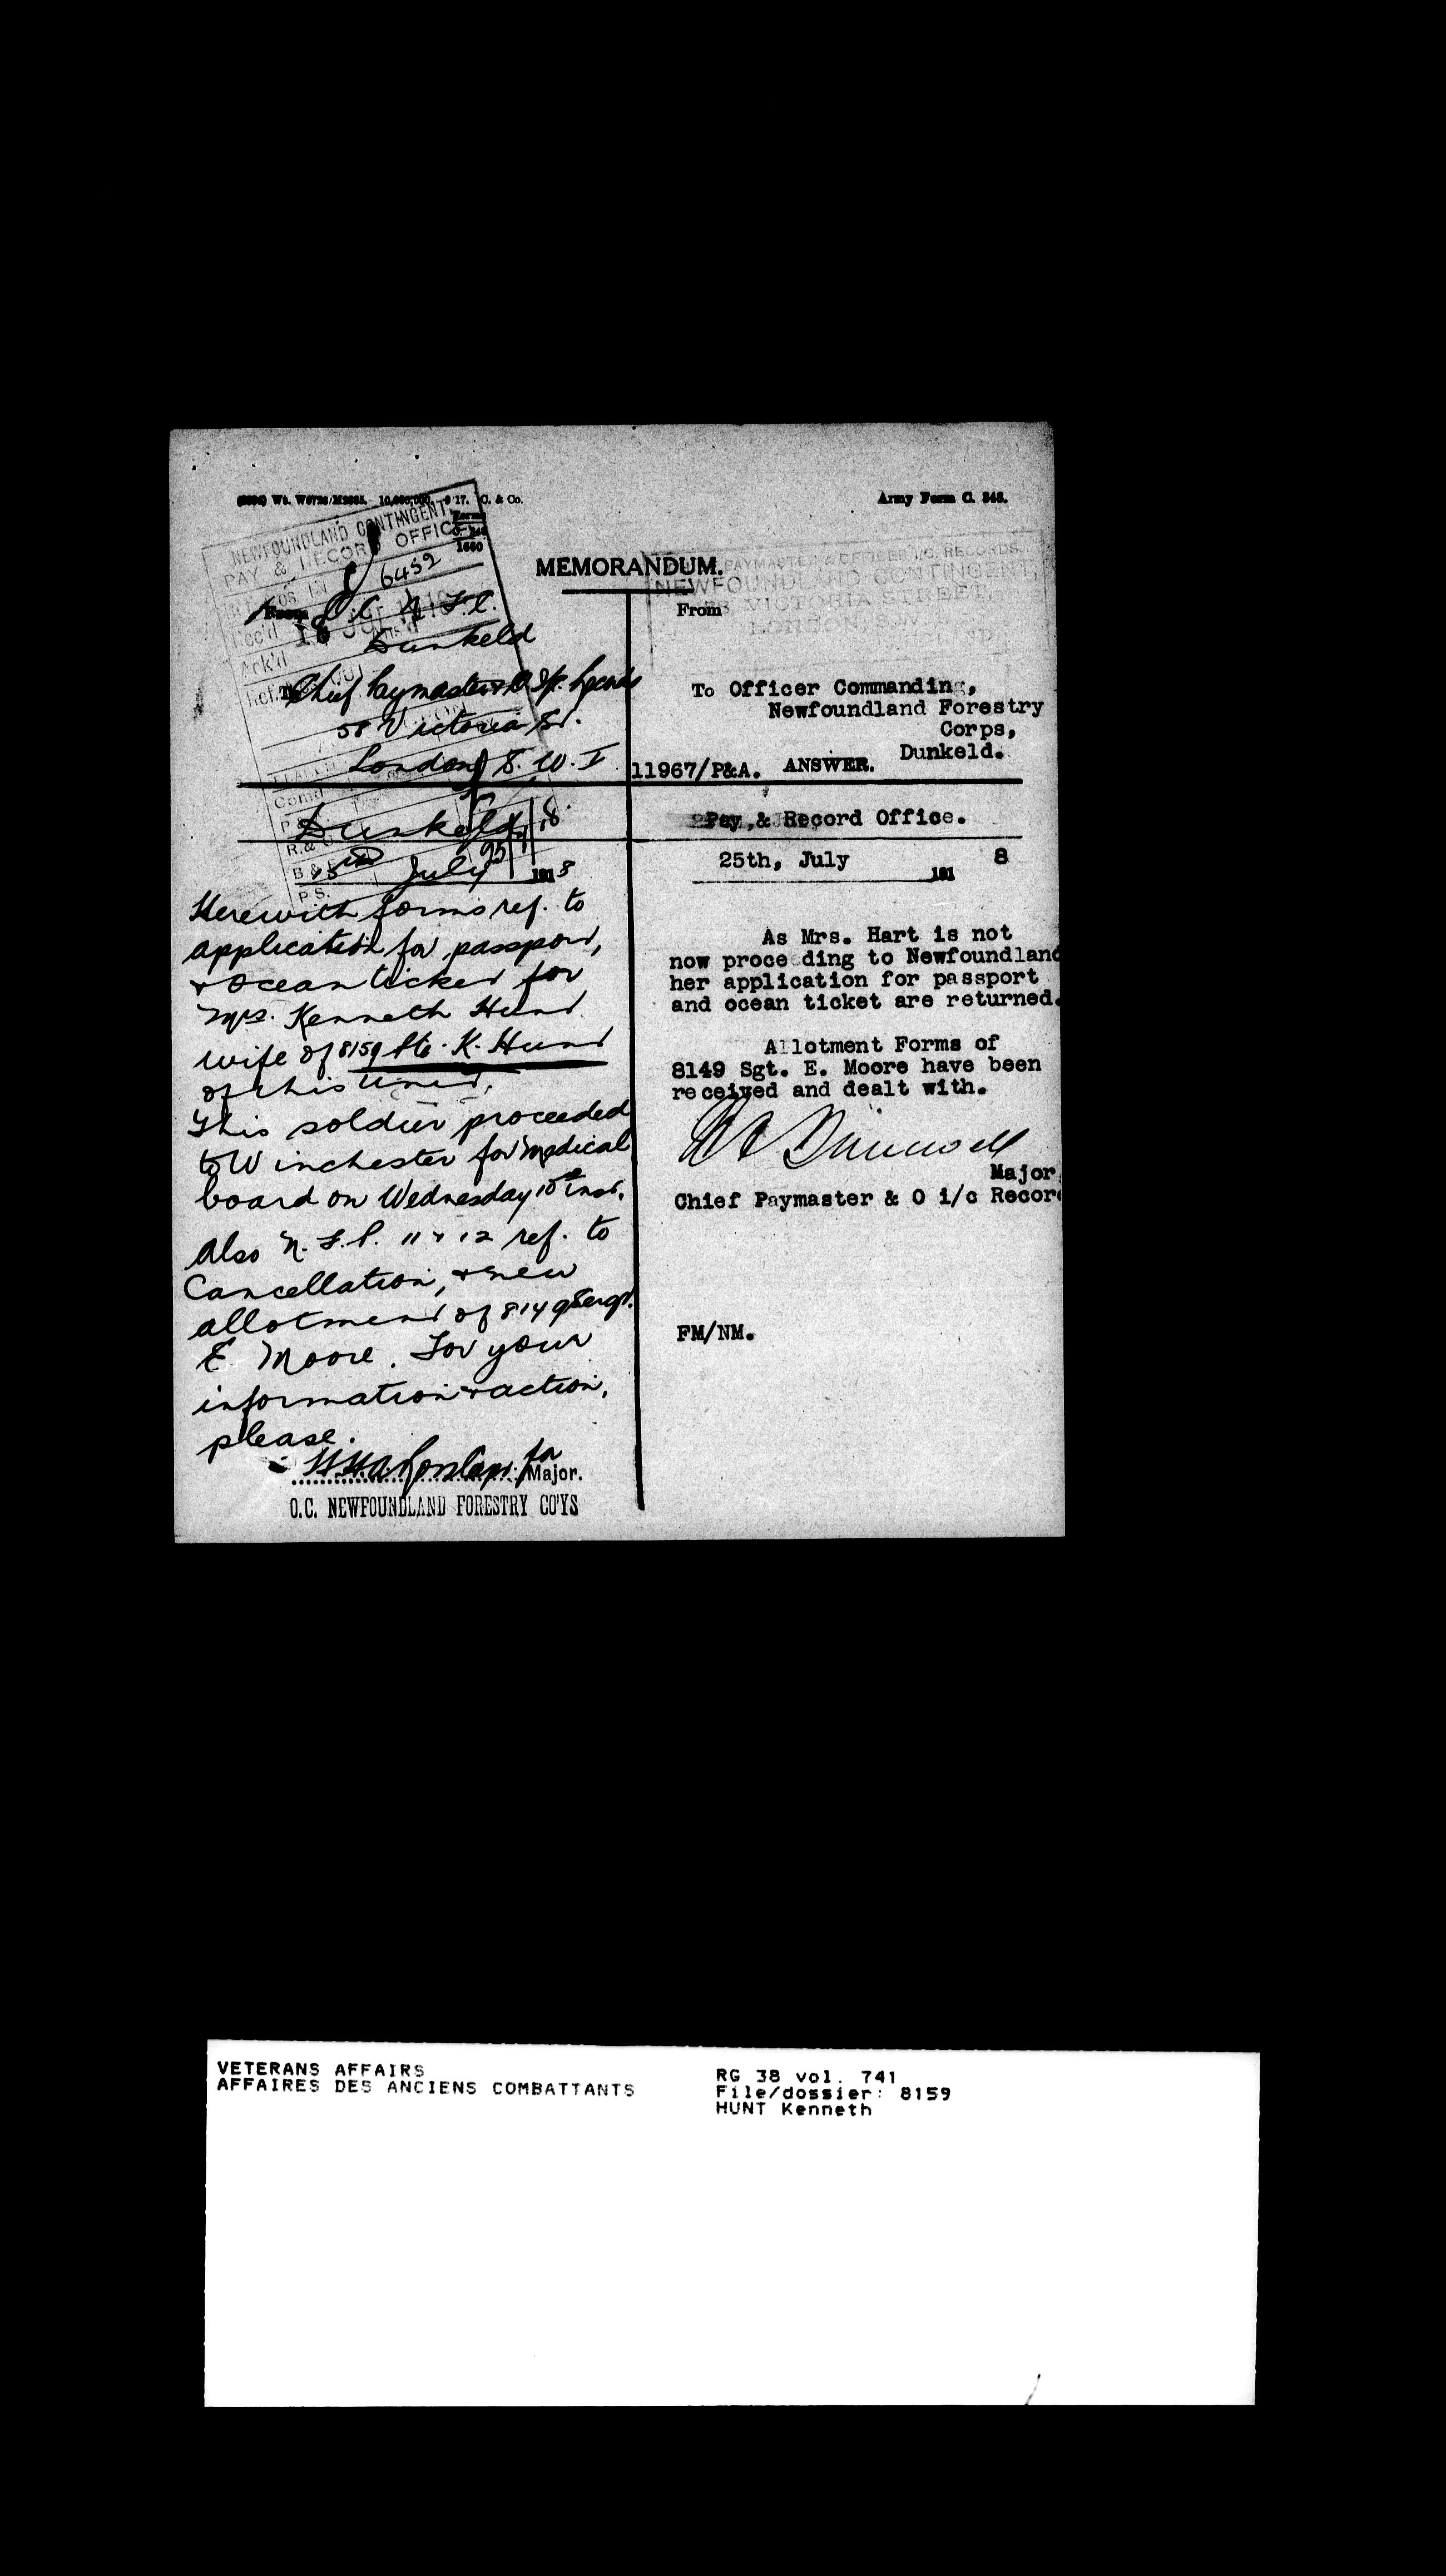 10,000,000. 9/17. C. & Co.
Army Form C. 348.
NEWFOUNDLAND CONTINGENT,
PAY & RECORD OFFICE
6452
MEMORANDUM.
PAYMASTER & OFFICER I/C. RECORDS,
NEWFOUNDLAND CONTINGENT,
58, VICTORIA STREET,
LONDON, S.W.
From O.C. N.F.C.
Dunkeld
To Chief Paymaster & O. I/c. Records
58 Victoria St.
London S.W. I
Dunkeld
July 1918
Herewith forms ref. to
application for passport,
& Ocean ticket for
Mrs. Kenneth Hunt
wife of 8159 Pte. K. Hunt
of this unit.
This soldier proceeded
to Winchester for Medical
board on Wednesday 10th inst.
Also N.F.P. 11 & 12 ref. to
Cancellation, & new
allotment of 8149 Sergt.
E. Moore. For your
information & action,
please.
for
Major.
O.C. NEWFOUNDLAND FORESTRY CO'YS
From
To Officer Commanding,
Newfoundland Forestry
Corps,
Dunkeld.
11967/P&A. ANSWER.
Pay & Record Office.
25th, July 1918
As Mrs. Hart is not
now proceeding to Newfoundland
her application for passport
and ocean ticket are returned.
Allotment Forms of
8149 Sgt. E. Moore have been
received and dealt with.
Major
Chief Paymaster & O i/c Record
FM/NM.
VETERANS AFFAIRS
AFFAIRES DES ANCIENS COMBATTANTS
RG 38 vol. 741
File/dossier: 8159
HUNT Kenneth